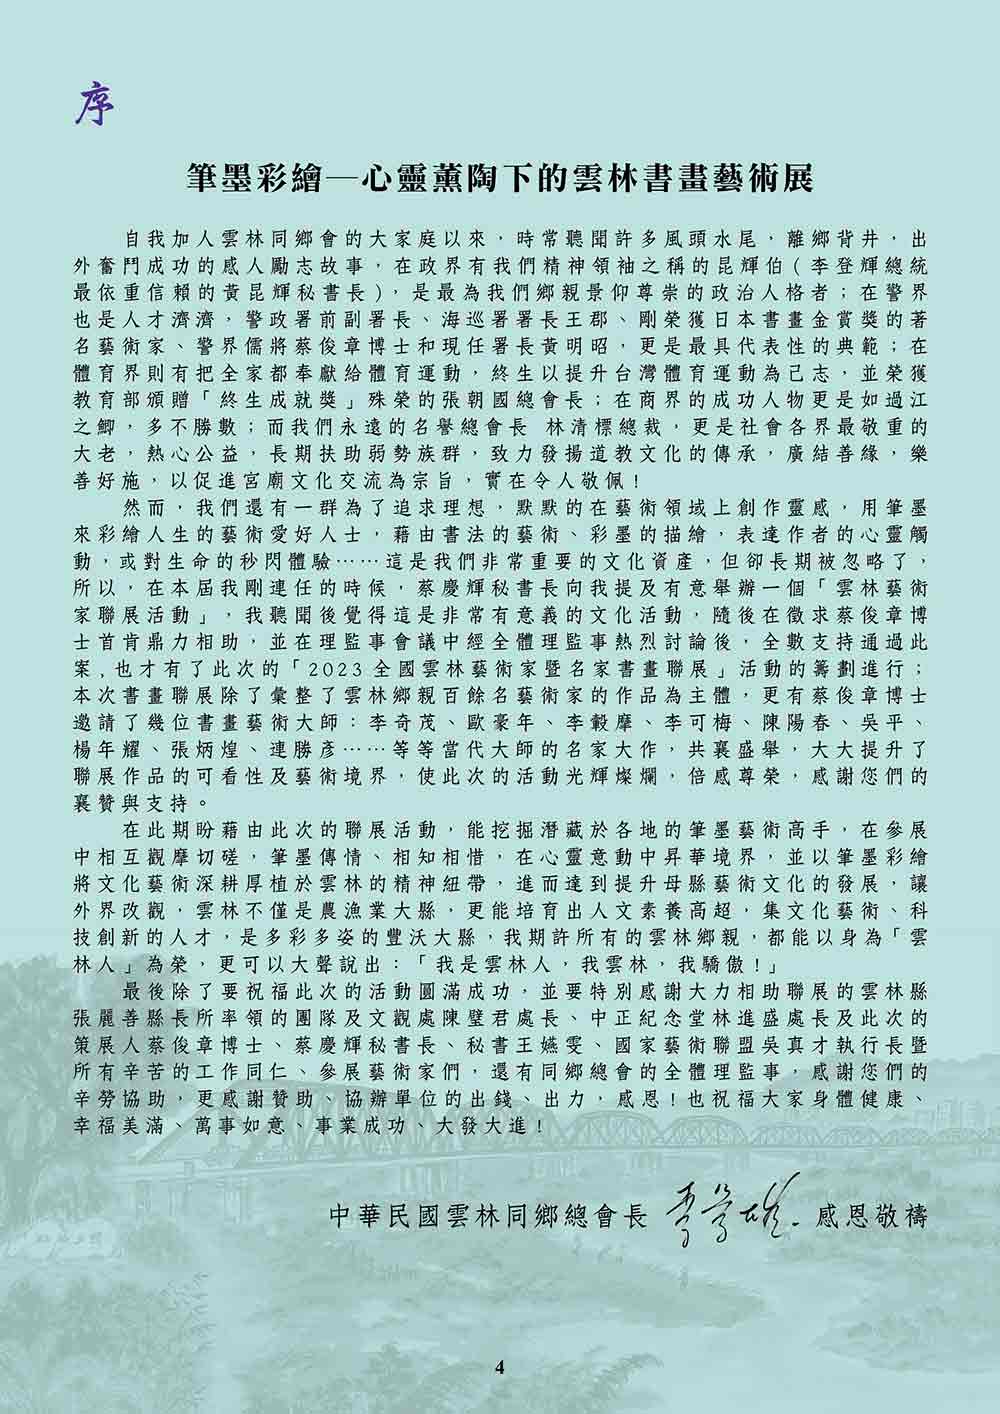 序
筆墨彩繪─心靈薰陶下的雲林書畫藝術展
自我加入雲林同鄉會的大家庭以來，時常聽聞許多風頭水尾，離鄉背井，出
外奮鬥成功的感人勵志故事，在政界有我們精神領袖之稱的昆輝伯(李登輝總統
最依重信賴的黃昆輝秘書長)，是最為我們鄉親景仰尊崇的政治人格者；在警界
也是人才濟濟，警政署前副署長、海巡署署長王郡、剛榮獲日本書畫金賞獎的著
名藝術家、警界儒將蔡俊章博士和現任署長黃明昭，更是最具代表性的典範；在
體育界則有把全家都奉獻給體育運動，終生以提升台灣體育運動為己志，並榮獲
教育部頒贈「終生成就獎」殊榮的張朝國總會長；在商界的成功人物更是如過江
之鯽，多不勝數；而我們永遠的名譽總會長 林清標總裁，更是社會各界最敬重的
大老，熱心公益，長期扶助弱勢族群，致力發揚道教文化的傳承，廣結善緣，樂
善好施，以促進宮廟文化交流為宗旨，實在令人敬佩!
然而，我們還有一群為了追求理想，默默的在藝術領域上創作靈感，用筆墨
來彩繪人生的藝術愛好人士，藉由書法的藝術、彩墨的描繪，表達作者的心靈觸
動，或對生命的秒閃體驗……這是我們非常重要的文化資產，但卻長期被忽略了，
所以，在本屆我剛連任的時候，蔡慶輝秘書長向我提及有意舉辦一個「雲林藝術
家聯展活動」，我聽聞後覺得這是非常有意義的文化活動，隨後在徵求蔡俊章博
士首肯鼎力相助，並在理監事會議中經全體理監事熱烈討論後，全數支持通過此
案,也才有了此次的「2023全國雲林藝術家暨名家書畫聯展」活動的籌劃進行；
本次書畫聯展除了彙整了雲林鄉親百餘名藝術家的作品為主體，更有蔡俊章博士
邀請了幾位書畫藝術大師：李奇茂、歐豪年、李轂摩、李可梅、陳陽春、吳平、
楊年耀、張炳煌、連勝彥……等等當代大師的名家大作，共襄盛舉，大大提升了
聯展作品的可看性及藝術境界，使此次的活動光輝燦爛，倍感尊榮，感謝您們的
襄贊與支持。
在此期盼藉由此次的聯展活動，能挖掘潛藏於各地的筆墨藝術高手，在參展
中相互觀摩切磋，筆墨傳情、相知相惜，在心靈意動中昇華境界，並以筆墨彩繪
將文化藝術深耕厚植於雲林的精神紐帶，進而達到提升母縣藝術文化的發展，讓
外界改觀，雲林不僅是農漁業大縣，更能培育出人文素養高超，集文化藝術、科
技創新的人才，是多彩多姿的豐沃大縣，我期許所有的雲林鄉親，都能以身為「雲
林人」為榮，更可以大聲說出：「我是雲林人，我雲林，我驕傲!」
最後除了要祝福此次的活動圓滿成功，並要特別感謝大力相助聯展的雲林縣
張麗善縣長所率領的團隊及文觀處陳璧君處長、中正紀念堂林進盛處長及此次的
策展人蔡俊章博士、蔡慶輝秘書長、秘書王嬿雯、國家藝術聯盟吳真才執行長暨
所有辛苦的工作同仁、參展藝術家們，還有同鄉總會的全體理監事，感謝您們的
辛勞協助，更感謝贊助、協辦單位的出錢、出力，感恩!也祝福大家身體健康、
幸福美滿、萬事如意、事業成功、大發大進!
中華民國雲林同鄉總會長 感恩敬禱
4